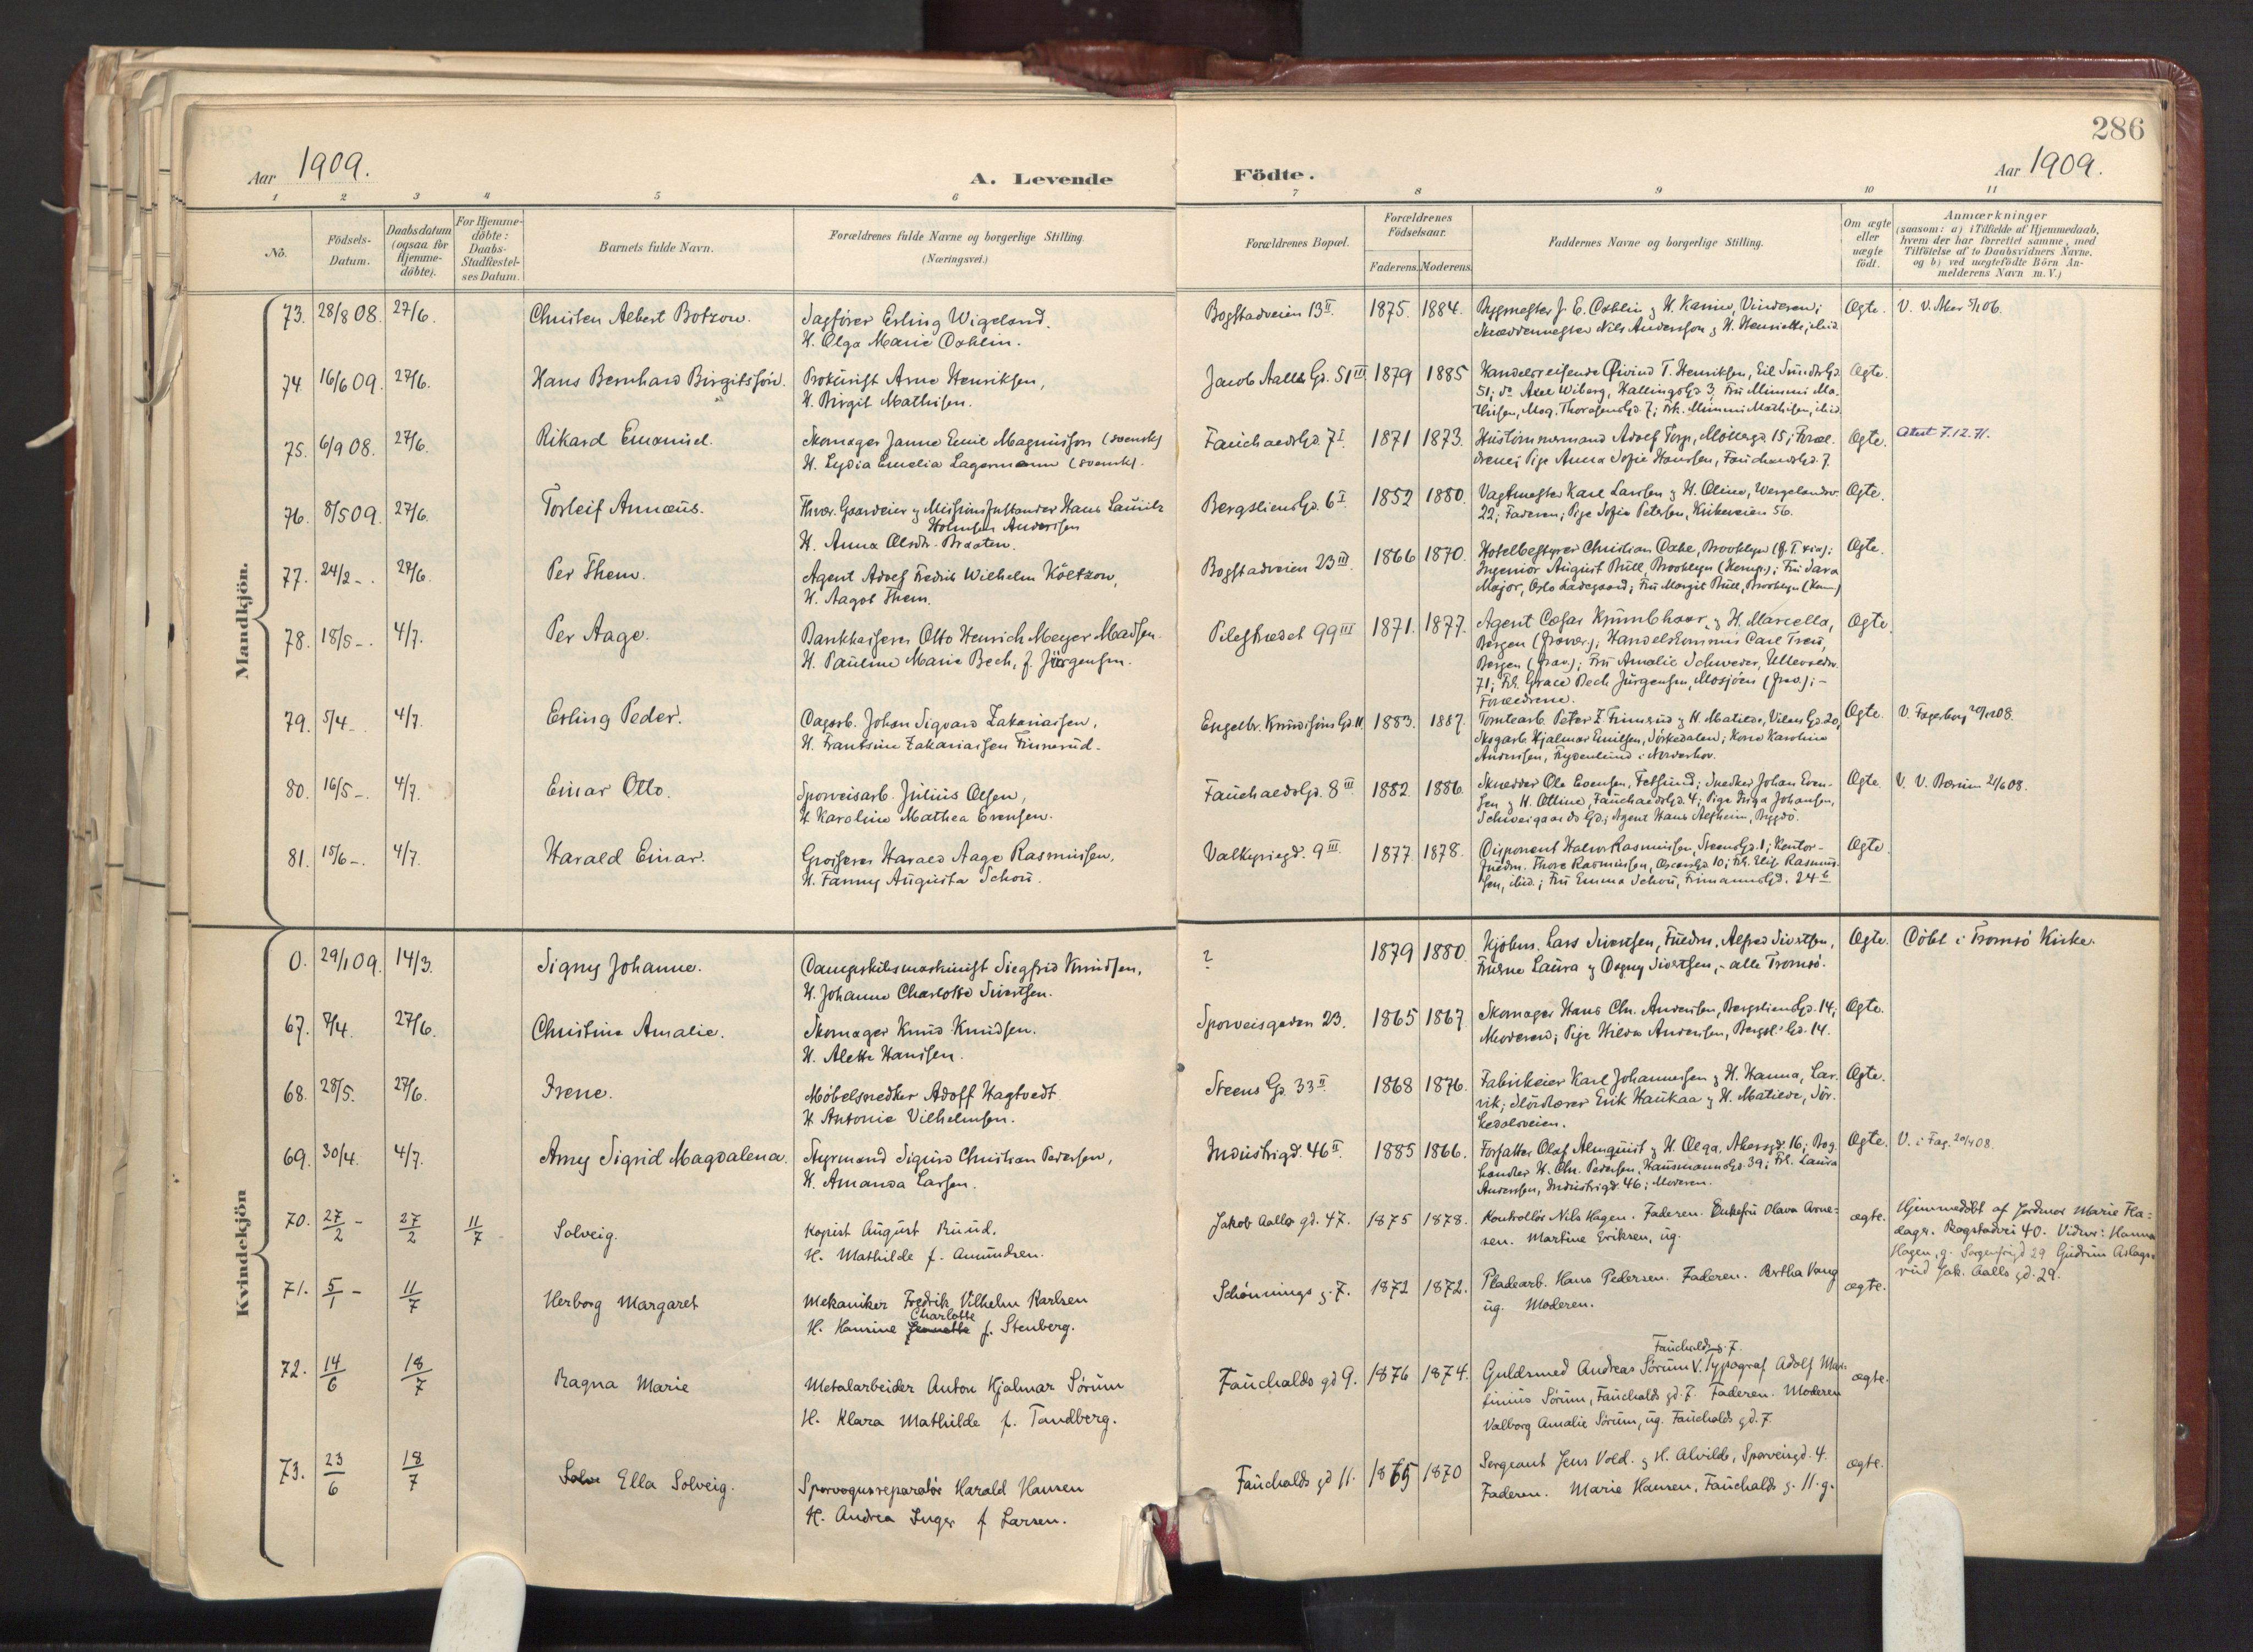 286
Aar 1909.
A. Levende
Födte.
Aar 1909.
1 2 3 4 5 6 7 8 9 10 11
No.
Födsels-
Datum.
Daabsdatum
(ogsaa for
Hjemme-
döbte).
For Hjemme-
döbte:
Daabs-
Stadfæstel-
ses Datum.
Barnets fulde Navn.
Forældrenes fulde Navne og borgerlige Stilling.
(Næringsvei.)
Forældrenes Bopæl.
Forældrenes
Födselsaar.
Faderens. Moderens.
Faddernes Navne og borgerlige Stilling.
Om ægte
eller
uægte
födt.
Anmærkninger
(saasom: a) i Tilfælde af Hjemmedaab,
hvem der har forrettet samme, med
Tilföielse af to Daabsvidners Navne.
og b) ved uægtefödte Börn An-
melderens Navn m. V.)
Mandkjön.
73. 28/8 08. 27/6. Christen Albert Botzow. Sagfører Erling Wigeland.
H. Olga Marie Dahlin.
Bogstadveien 13 II. 1875. 1884. Bygmester J. E. Dahlin & H. Kamie, Vinderen;
Skræddermester Nils Andersson & H. Henriette, ibid.
Ægte. V. V. Aker 5/1 06.
74. 16/6 09. 27/6. Hans Bernhard Birgitssøn. Prokurist Arne Henriksen,
H. Birgit Mathisen.
Jacob Aalls Gd. 51 III 1879 1885 Handelsreisende Øivind T. Henriksen, Eil. Sundts Gd.
51; do Axel Wiborg, Hallings Gd. 3, Fru Mimmi Ma-
thisen, Mog. Thorsens Gd. 7; Frk. Mimmi Mathisen, ibid.
Ægte.
75. 6/9 08. 27/6. Rikard Emanuel. Skomager Janne Emil Magnusson (svensk)
H. Lydia Emelia Lagermann (svensk).
Fauchalds Gd. 7 I. 1871 1873. Hustømmermand Adolf Torp, Møllergd. 15; Foræl-
drene; Pige Anna Sofie Hanssen, Fauchalds Gd. 7.
Ægte. Atest 7.12.71.
76. 8/5 09. 27/6. Torleif Annæus. Fhvr. Gaardeier & Missionsjustander Hans Lauritz
Holmsen Anderssen
H. Anna Olsdtr. Braaten.
Bergsliens Gd. 6 I. 1852 1880. Vagtmester Karl Larsen & H. Oline, Wergelandsv.
22; Faderen; Pige Sofie Petersen, Kirkeveien 56.
Ægte.
77. 24/2 -. 27/6. Per Them. Agent Adolf Fredrik Wilhelm Költzow,
H. Aagot Them.
Bogstadveien 23 III. 1866 1870. Hotelbestyrer Christian Dahl, Brooklyn;
Ingeniør August Bull, Brooklyn; Fru Sara
Major, Oslo Ladegaard; Fru Margit Bull, Brooklyn
Ægte.
78. 18/5 -. 4/7. Per Aage. Bankkasserer Otto Henrich Meyer Madsen.
H. Pauline Marie Bech, f. Jürgensen.
Pilestrædet 99 III 1871. 1877. Agent Cæsar Krumbhaar & H. Marcella,
Bergen; Handelskommis Carl Treu,
Bergen (frav.); Fru Amalie Schweder, Ullevoldsv.
71; Frk. Grace Bech Jürgensen, Mosjøen (frav.); -
Forældrene.
Ægte.
79. 5/4 -. 4/7. Erling Peder. Dagarb. Johan Sigvard Zakariassen,
H. Frantsine Zakariassen Finnerud.
Engelbr. Knudssøns Gd. 11. 1883. 1887. Tomtearb. Peter Z. Finnerud & H. Matilde, Vibes Gd. 20;
Skogarb. Hjalmar Emilsen, Sørkedalen; Kone Karoline
Anderssen, Frydenlund i Norderhov.
Ægte. V. Fagerborg 20/12 08.
80. 16/5 -. 4/7. Einar Otto. Sporveisarb. Julius Olsen,
H. Karoline Mathea Evensen.
Fauchalds Gd. 8 III. 1882. 1886. Skrædder Ole Evensen, Fetsund; Snedker Johan Even-
sen & H. Otline, Fauchalds Gd. 4; Pige Inga Johansen,
Schweigaards Gd.; Agent Hans Alfheim, Bygdø.
Ægte. V. V. Bærum 21/6 08.
81. 15/6 -. 4/7. Harald Einar. Grosserer Harald Aage Rasmussen,
H. Fanny Augusta Schou.
Valkyriegd. 9 III. 1877. 1878. Disponent Halvor Rasmussen, Steens Gd. 1; Kontor-
fuldm. Thore Rasmussen, Oscars Gd. 10; Frk. Elise Rasmus-
sen, ibid.; Fru Emma Schou, Frimanns Gd. 24 b
Ægte.
Kvindekjön
0. 29/1 09. 14/3. Signy Johanne. Dampskibsmaskinist Siegfrid Knudsen,
H. Johanne Charlotte Sivertsen.
? 1879 1880. Kjøbm. Lars Sivertsen, Fuldm. Alfred Sivertsen,
Fruerne Laura & Dagny Sivertsen, - alle Tromsø.
Ægte. Döbt i Tromsö Kirke.
67. 7/4. 27/6. Christine Amalie. Skomager Knud Knudsen.
H. Alette Hanssen.
Sporveisgaden 23. 1865 1867. Skomager Hans Chr. Anderssen, Bergsliens Gd. 14;
Moderen; Pige Hilda Anderssen, Bergsl. Gd. 14.
Ægte.
68. 28/5. 27/6. Irene. Møbelsnedker Adolf Hagtvedt
H. Antonie Vilhelmsen.
Steens Gd. 33 II 1868 1876. Fabrikeier Karl Johannessen & H. Hanna, Lar-
vik; Slöidlærer Erik Haukaa & H. Matilde, Sør-
kedalsveien.
Ægte.
69. 30/4. 4/7. Amy Sigrid Magdalena. Styrmand Sigurd Christian Pedersen,
H. Amanda Larsen.
Industrigd. 46 II. 1885 1866. Forfatter Olaf Almquist & H. Olga, Akersgd. 16; Bog-
handler H. Chr. Pedersen, Hausmanns Gd. 39; Frk. Laura
Anderssen, Industrigd. 46; Moderen.
Ægte. V. i Fag. 20/4 08.
70. 27/2 - 27/2 11/7 Solveig. Kopist August Ruud.
H. Mathilde f. Amundsen.
Jakob Aalls gd. 47. 1875 1878. Kontrollör Nils Hagen. Faderen. Enkefru Olava Arne-
sen. Martine Eriksen, ug.
ægte. Hjemmedöbt af Jordmor Marie Fla-
dager. Bogstadvei 40. Vidner: Hanna
Hagen, g. Sorgenfrigd 29 Gudrun Aslags-
rud Jak. Aalls gd. 29.
71. 5/1 - 11/7 Herborg Margaret Mekaniker Fredrik Vilhelm Karlsen
Charlotte
H. Hansine f. Stenberg.
Schönnings g. 7. 1872 1872. Pladearb. Hans Pedersen. Faderen. Bertha Vang
ug. Moderen.
ægte.
72. 14/6 18/7 Ragna Marie Metalarbeider Anton Hjalmar Sörum
H. Klara Mathilde f. Tandberg.
Fauchalds gd 9. 1876 1874. Fauchalds g. 7.
Guldsmed Andreas Sörum V. Typograf Adolf Mar-
tinius Sörum, Fauchalds gd. 7. Faderen. Moderen
Valborg Amalie Sörum, ug. Fauchalds gd. 7.
ægte.
73. 23/6 18/7 Solv Ella Solveig. Sporvognsreparatör Harald Hansen
H. Andrea Inger f Larsen.
Fauchalds gd 11. 1865 1870 Sergeant Jens Vold. & H. Alvilde, Sporveisgd. 4.
Faderen. Marie Hansen, Fauchalds g. 11. g.
ægte.